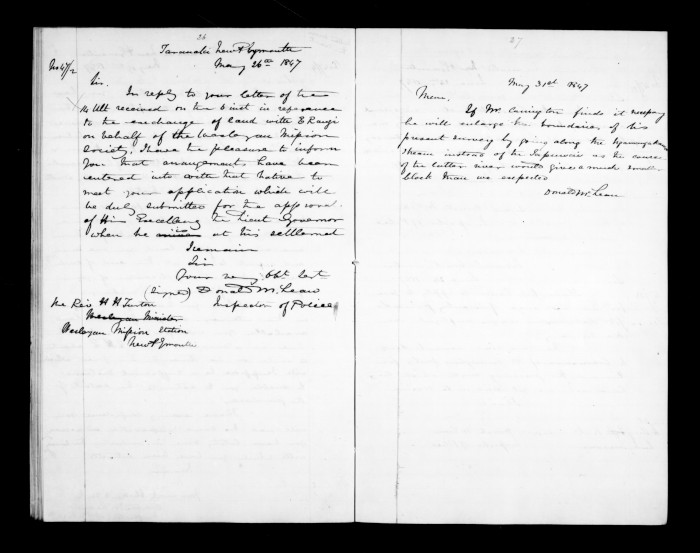 26
Taranaki New Plymouth
May 26th 1847
No 47/2
Sir.
In reply to your letter of the
14 Ult received on the 6 inst in reference
to the exchange of land with E Rangi
on behalf of the Wesleyan Mission
Society, I have the pleasure to inform
you that arrangements have been
entered into with that Native to
meet your application which will
be duly submitted for the approval
of His Excellency the Lieut Governor
when he at this settlement
I remain
Sir
Your very Obt Servt
(Signed) Donald McLean
Inspector of Police
The Rev H H Turton
Wesleyan Minister
Wesleyan Mission Station
New Plymouth
27
May 31st 1847
Memo,
If Mr. Carrington finds it necessary
he will enlarge the boundaries of his
present survey by going along the
Stream instead of the as the course
of the latter river would give a much smaller
block than we expected
Donald McLean